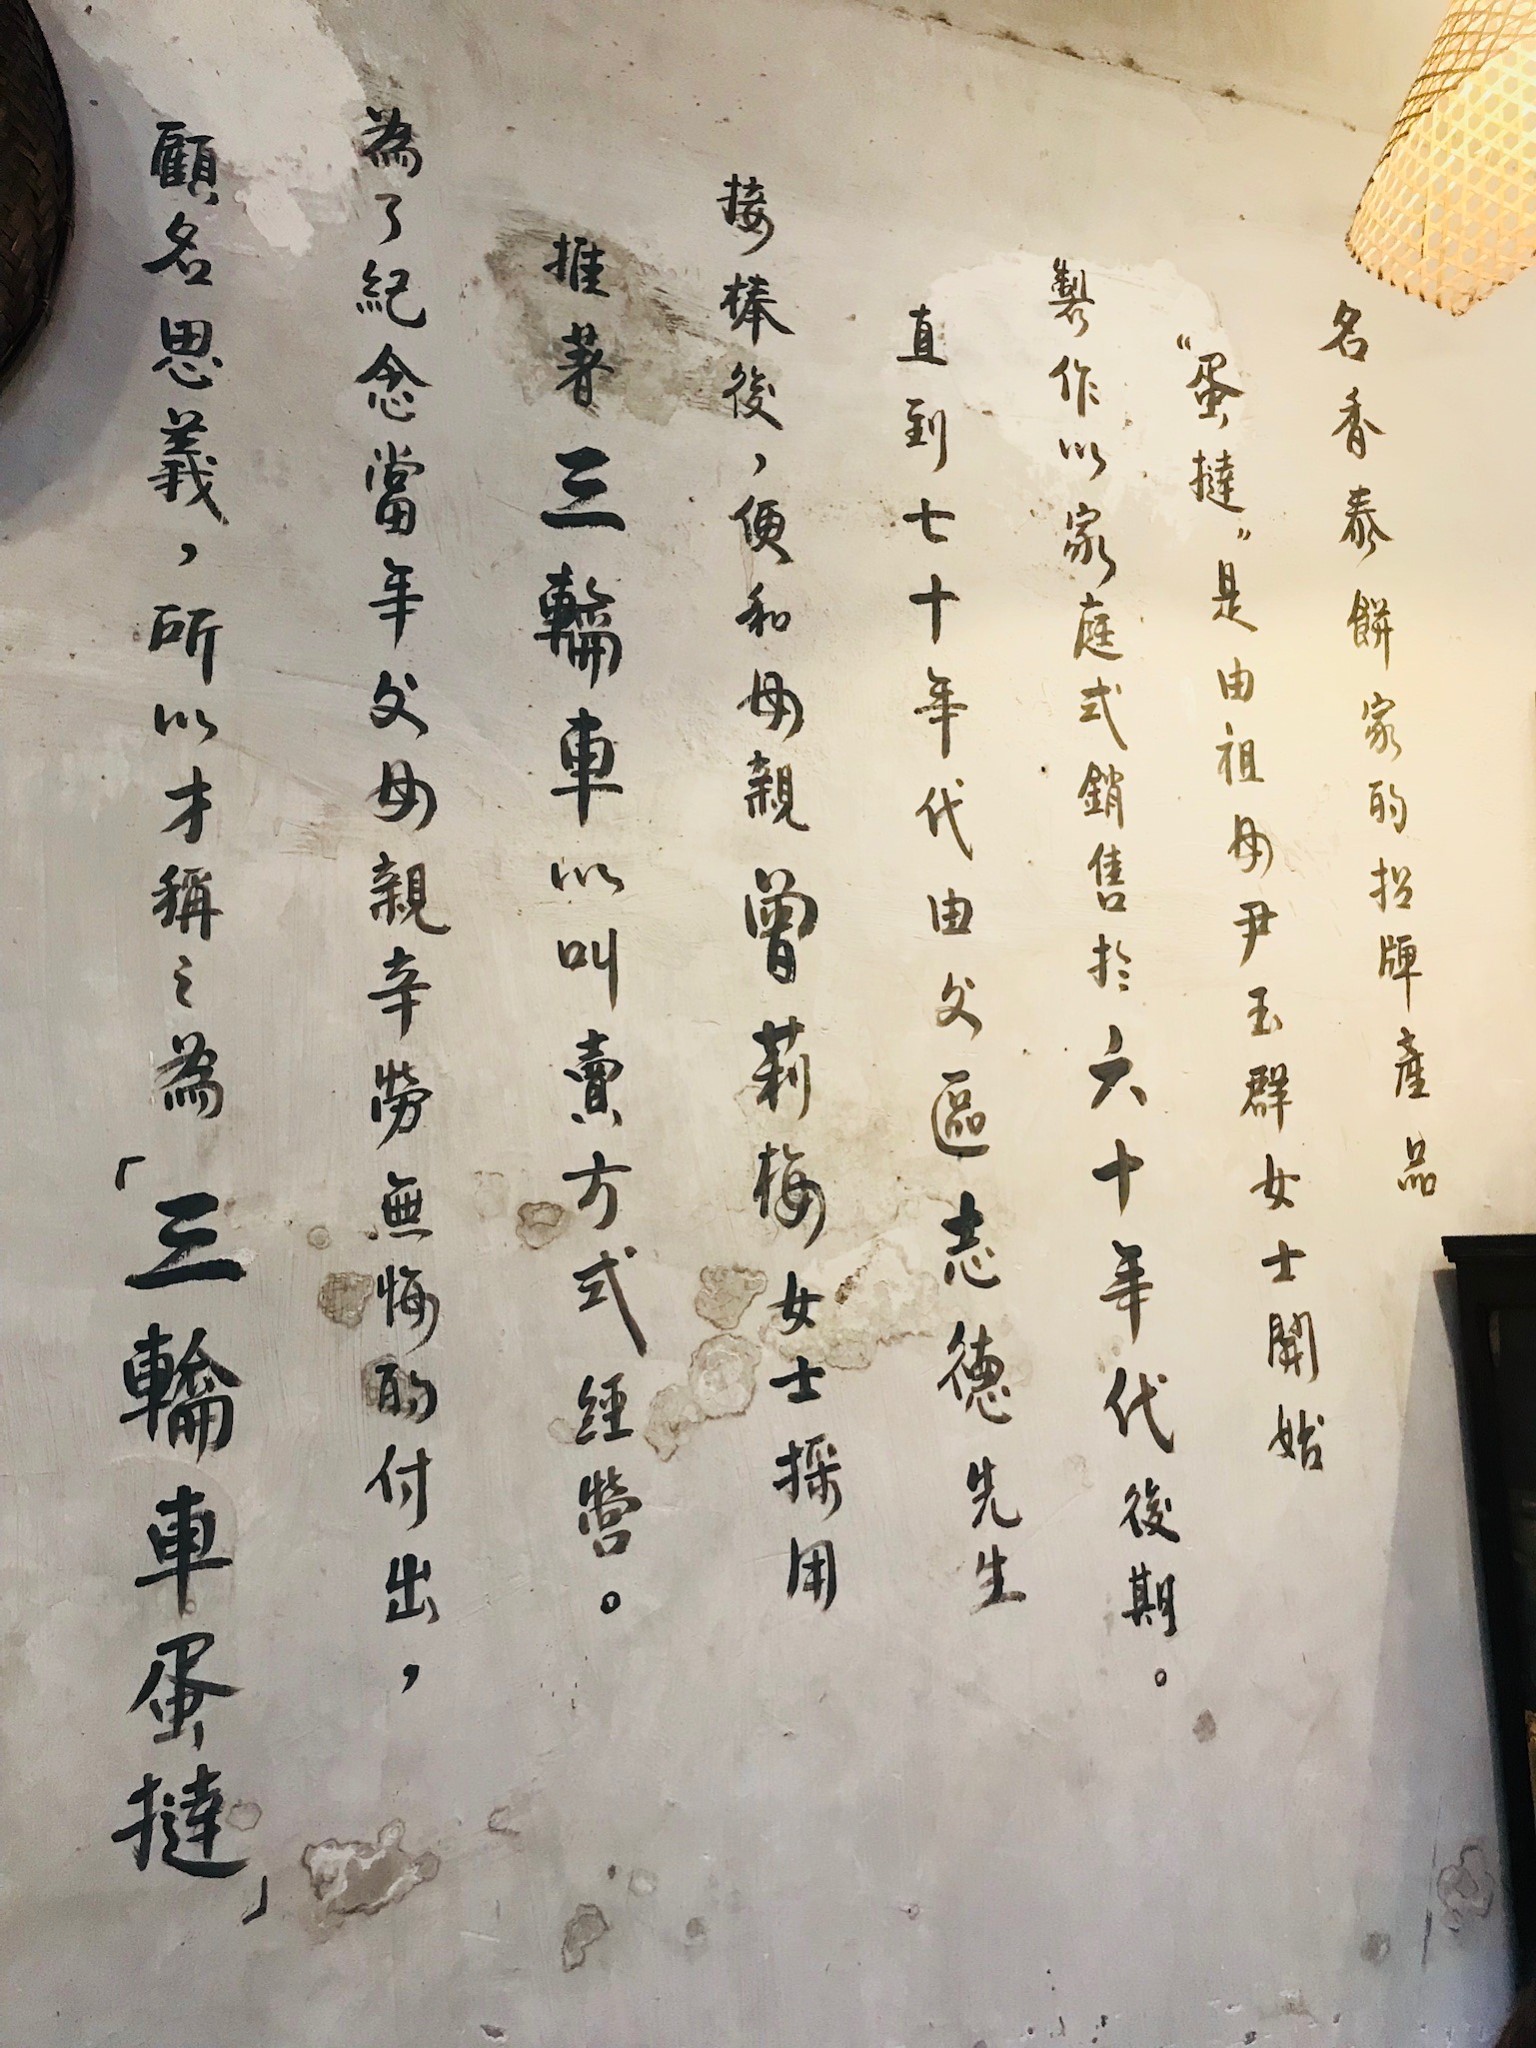 名香泰餅家的招牌產品
“蛋撻”是由祖母尹玉群女士開始
製作以家庭式銷售於六十年代後期。
直到七十年代由父區志德先生
接棒後，便和母親曾莉梅女士採用
推著三輪車以叫賣方式經營。
為了紀念當年父母親辛勞無悔的付出，
顧名思義，所以才稱之為「三輪車蛋撻」